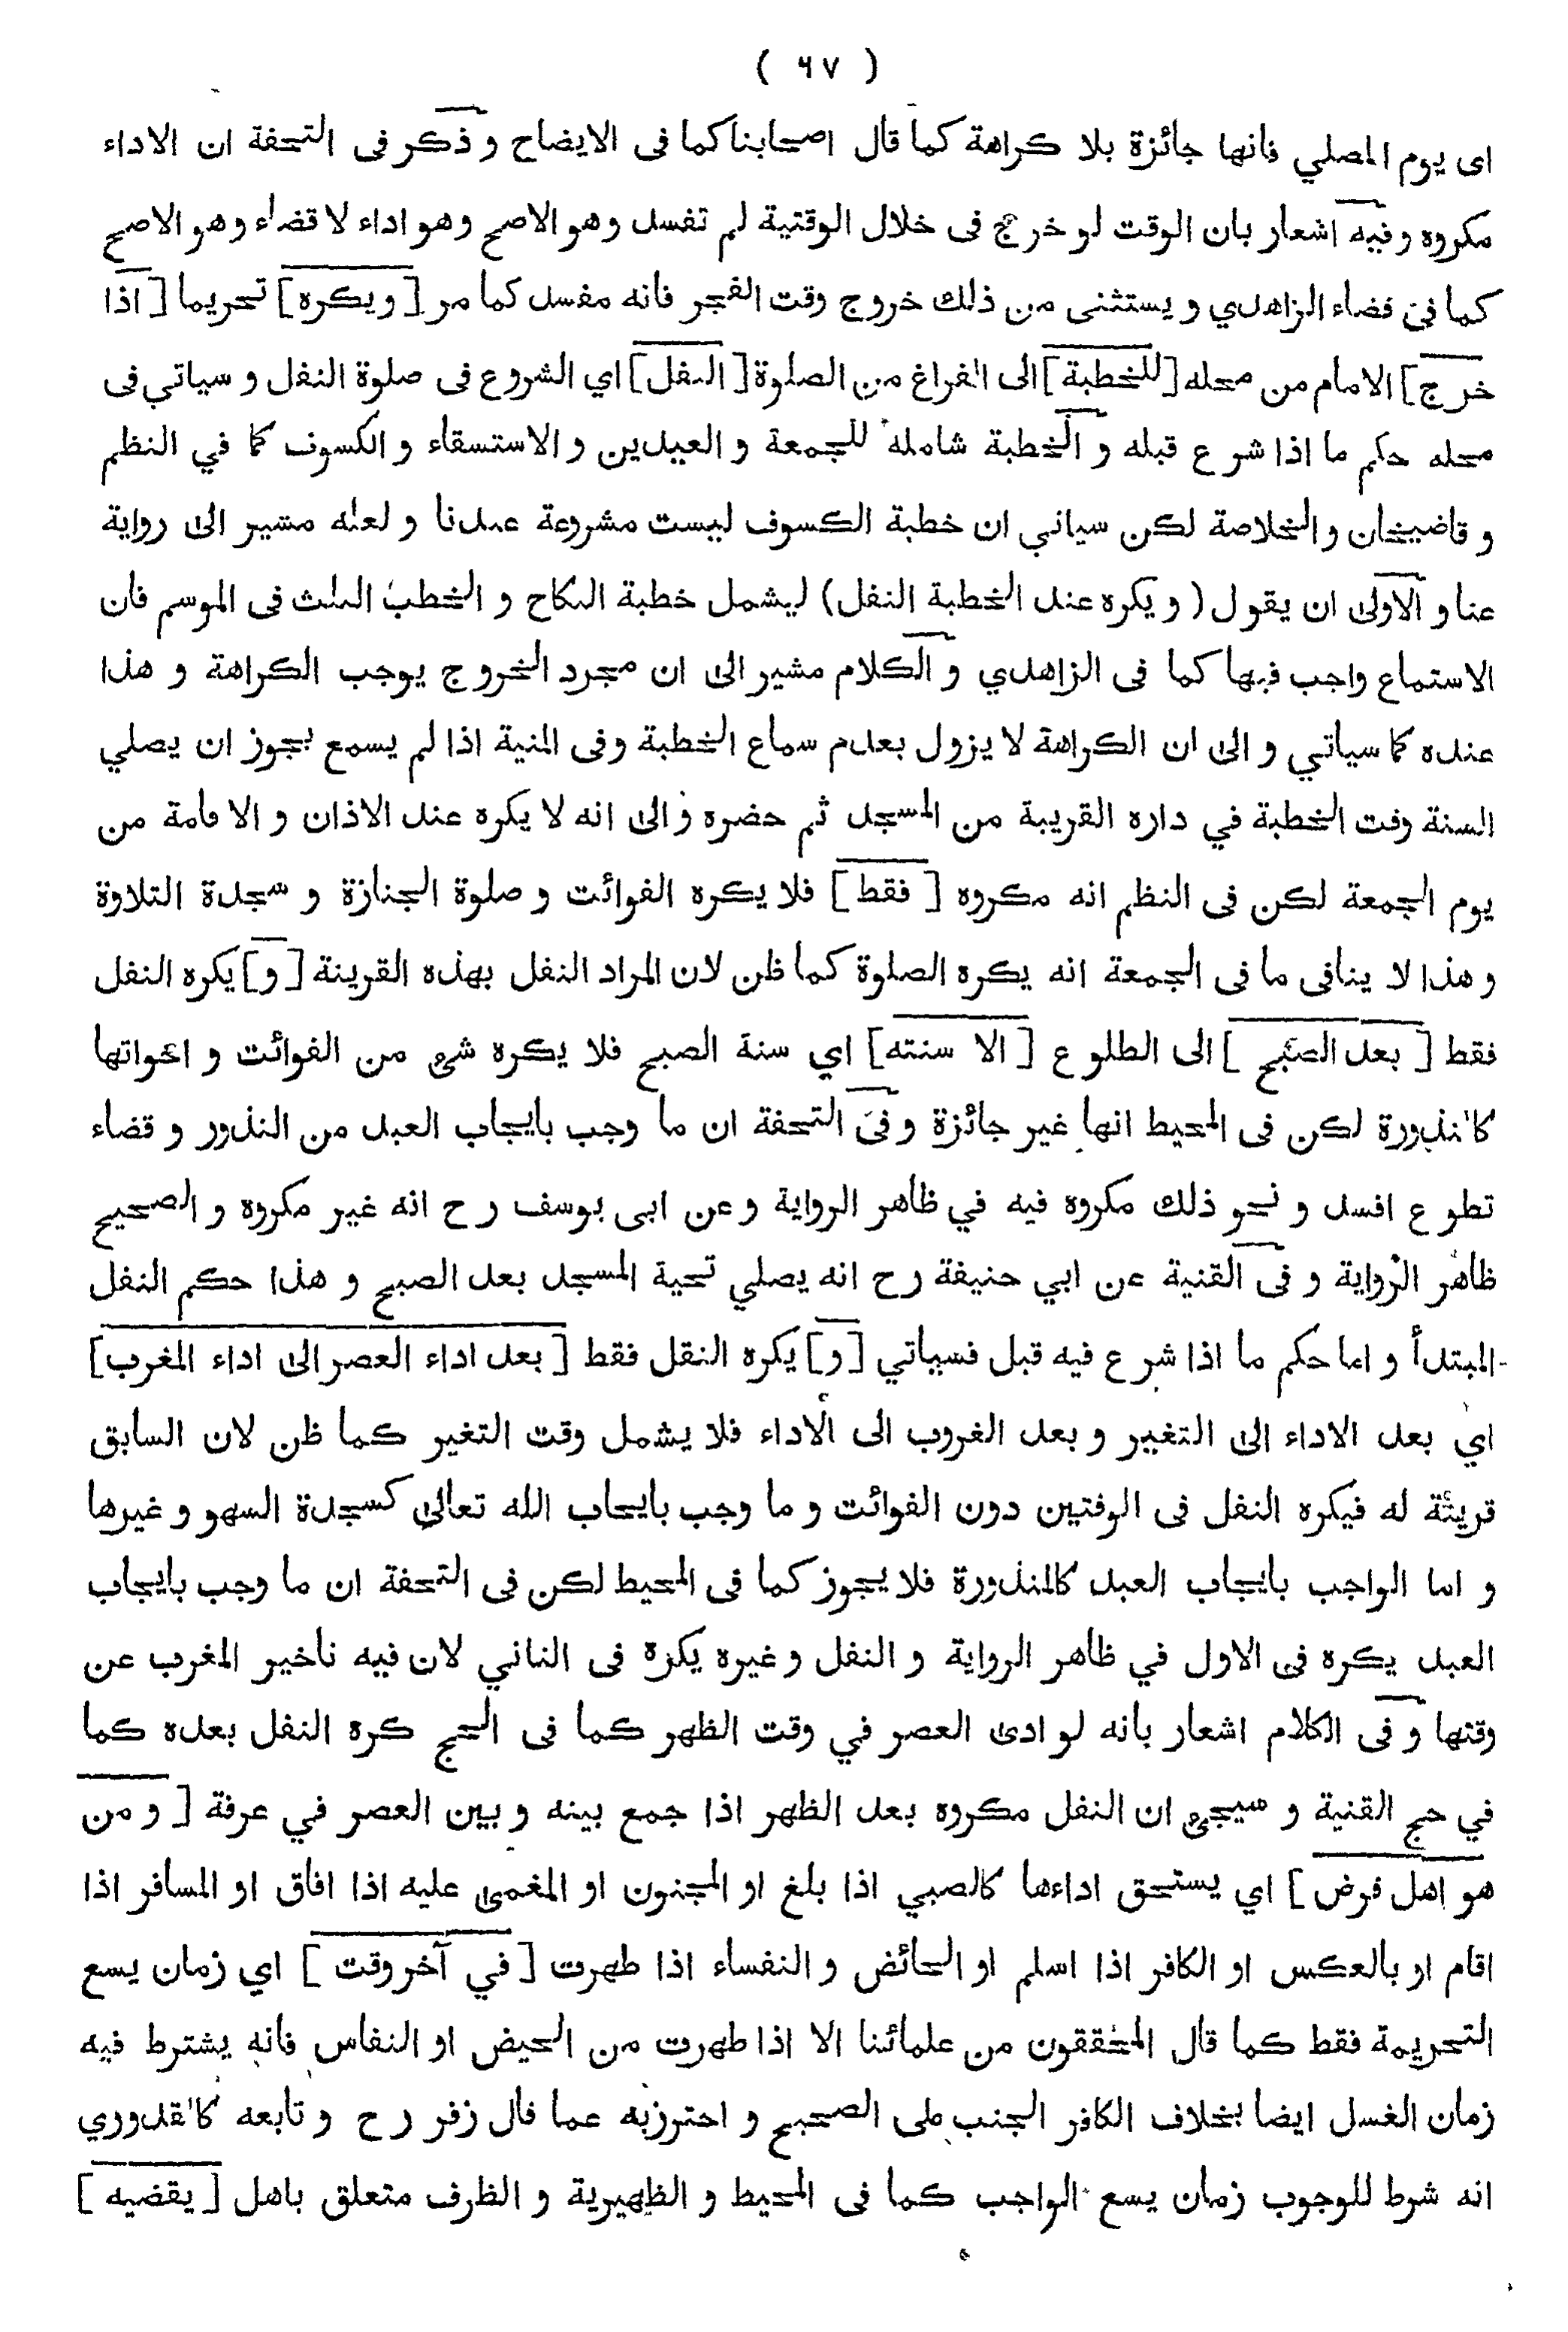 ( ٦٧ )
اى يوم المصلي فانها جائزة بلا كراهة كما قال اصحابنا كما فى الايضاح و ذكر فى التحفة ان الاداء
مكروه و فيه اشعار بان الوقت لو خرج فى خلال الوقتية لم تفسد وهو الاصح وهو اداء لا قضاء وهو الاصح
كما فى قضاء الزاهدي و يستثنى من ذلك خروج وقت الفجر فانه مفسد كما مر [ ويكره ] تحريما [ اذا
خرج ] الامام من محله [ للخطبة ] الى الفراغ من الصلوة [ النفل ] اي الشروع فى صلوة النفل و سياتي فى
محله حكم ما اذا شرع قبله و الخطبة شاملة للجمعة و العيدين و الاستسقاء و الكسوف كما في النظم
و قاضيخان و الخلاصة لكن سياتي ان خطبة الكسوف ليست مشروعة عندنا و لعله مشير الى رواية
عنا و الاولى ان يقول ( و يكره عند الخطبة النفل ) ليشمل خطبة النكاح و الخطب الثلث فى الموسم فان
الاستماع واجب فيها كما فى الزاهدي و الكلام مشير الى ان مجرد الخروج يوجب الكراهة و هذا
عنده كما سياتي و الى ان الكراهة لا يزول بعدم سماع الخطبة وفى المنية اذا لم يسمع يجوز ان يصلي
السنة وقت الخطبة في داره القريبة من المسجد ثم حضره و الى انه لا يكره عند الاذان و الاقامة من
يوم الجمعة لكن فى النظم انه مكروه [ فقط ] فلا يكره الفوائت و صلوة الجنازة و سجدة التلاوة
و هذا لا ينافى ما فى الجمعة انه يكره الصلوة كما ظن لان المراد النفل بهذه القرينة [ و ] يكره النفل
فقط [ بعد الصبح ] الى الطلوع [ الا سنته ] اي سنة الصبح فلا يكره شئ من الفوائت و اخواتها
كالمنذورة لكن فى المحيط انها غير جائزة و فى التحفة ان ما وجب بايجاب العبد من النذور و قضاء
تطوع افسد و نحو ذلك مكروه فيه في ظاهر الرواية و عن ابى يوسف رح انه غير مكروه و الصحيح
ظاهر الرواية و فى القنية عن ابي حنيفة رح انه يصلي تحية المسجد بعد الصبح و هذا حكم النفل
المبتدأ و اما حكم ما اذا شرع فيه قبل فسياتي [ و ] يكره النفل فقط [ بعد اداء العصر الى اداء المغرب ]
اي بعد الاداء الى التغير و بعد الغروب الى الاداء فلا يشمل وقت التغير كما ظن لان السابق
قرينة له فيكره النفل فى الوقتين دون الفوائت و ما وجب بايجاب الله تعالى كسجدة السهو و غيرها
و اما الواجب بايجاب العبد كالمنذورة فلا يجوز كما فى المحيط لكن فى التحفة ان ما وجب بايجاب
العبد يكره فى الاول في ظاهر الرواية و النفل و غيره يكره فى الثاني لان فيه تأخير المغرب عن
وقتها و فى الكلام اشعار بانه لو ادى العصر في وقت الظهر كما فى الحج كره النفل بعده كما
في حج القنية و سيجئ ان النفل مكروه بعد الظهر اذا جمع بينه و بين العصر في عرفة [ و من
هو اهل فرض ] اي يستحق اداءها كالصبي اذا بلغ او المجنون او المغمى عليه اذا افاق او المسافر اذا
اقام او بالعكس او الكافر اذا اسلم او الحائض و النفساء اذا طهرت [ في آخر وقت ] اي زمان يسع
التحريمة فقط كما قال المحققون من علمائنا الا اذا طهرت من الحيض او النفاس فانه يشترط فيه
زمان الغسل ايضا بخلاف الكافر الجنب على الصحيح و احترز به عما قال زفر رح و تابعه كالقدوري
انه شرط للوجوب زمان يسع الواجب كما فى المحيط و الظهيرية و الظرف متعلق باهل [ يقضيه ]